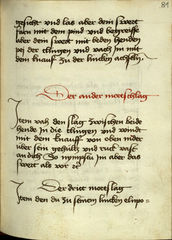 81
gesicht vnd las aber dem swert
farn mit dem pind vnd begreiffe
aber dem swert mit beden henden
pej der clingen vnd wach Im mit
dem knauf zu der lincken achseln
Der ander mortschlag
Item vah den slag zwischen beide
hende In die clingen vnd wind
mit dem knauff von oben nider
vber sein gehultz vnd ruck vast
an dich So nympstu Im aber das
swert als vor
Der dritt mort slag
Item den du zu seinem lincken elnpo